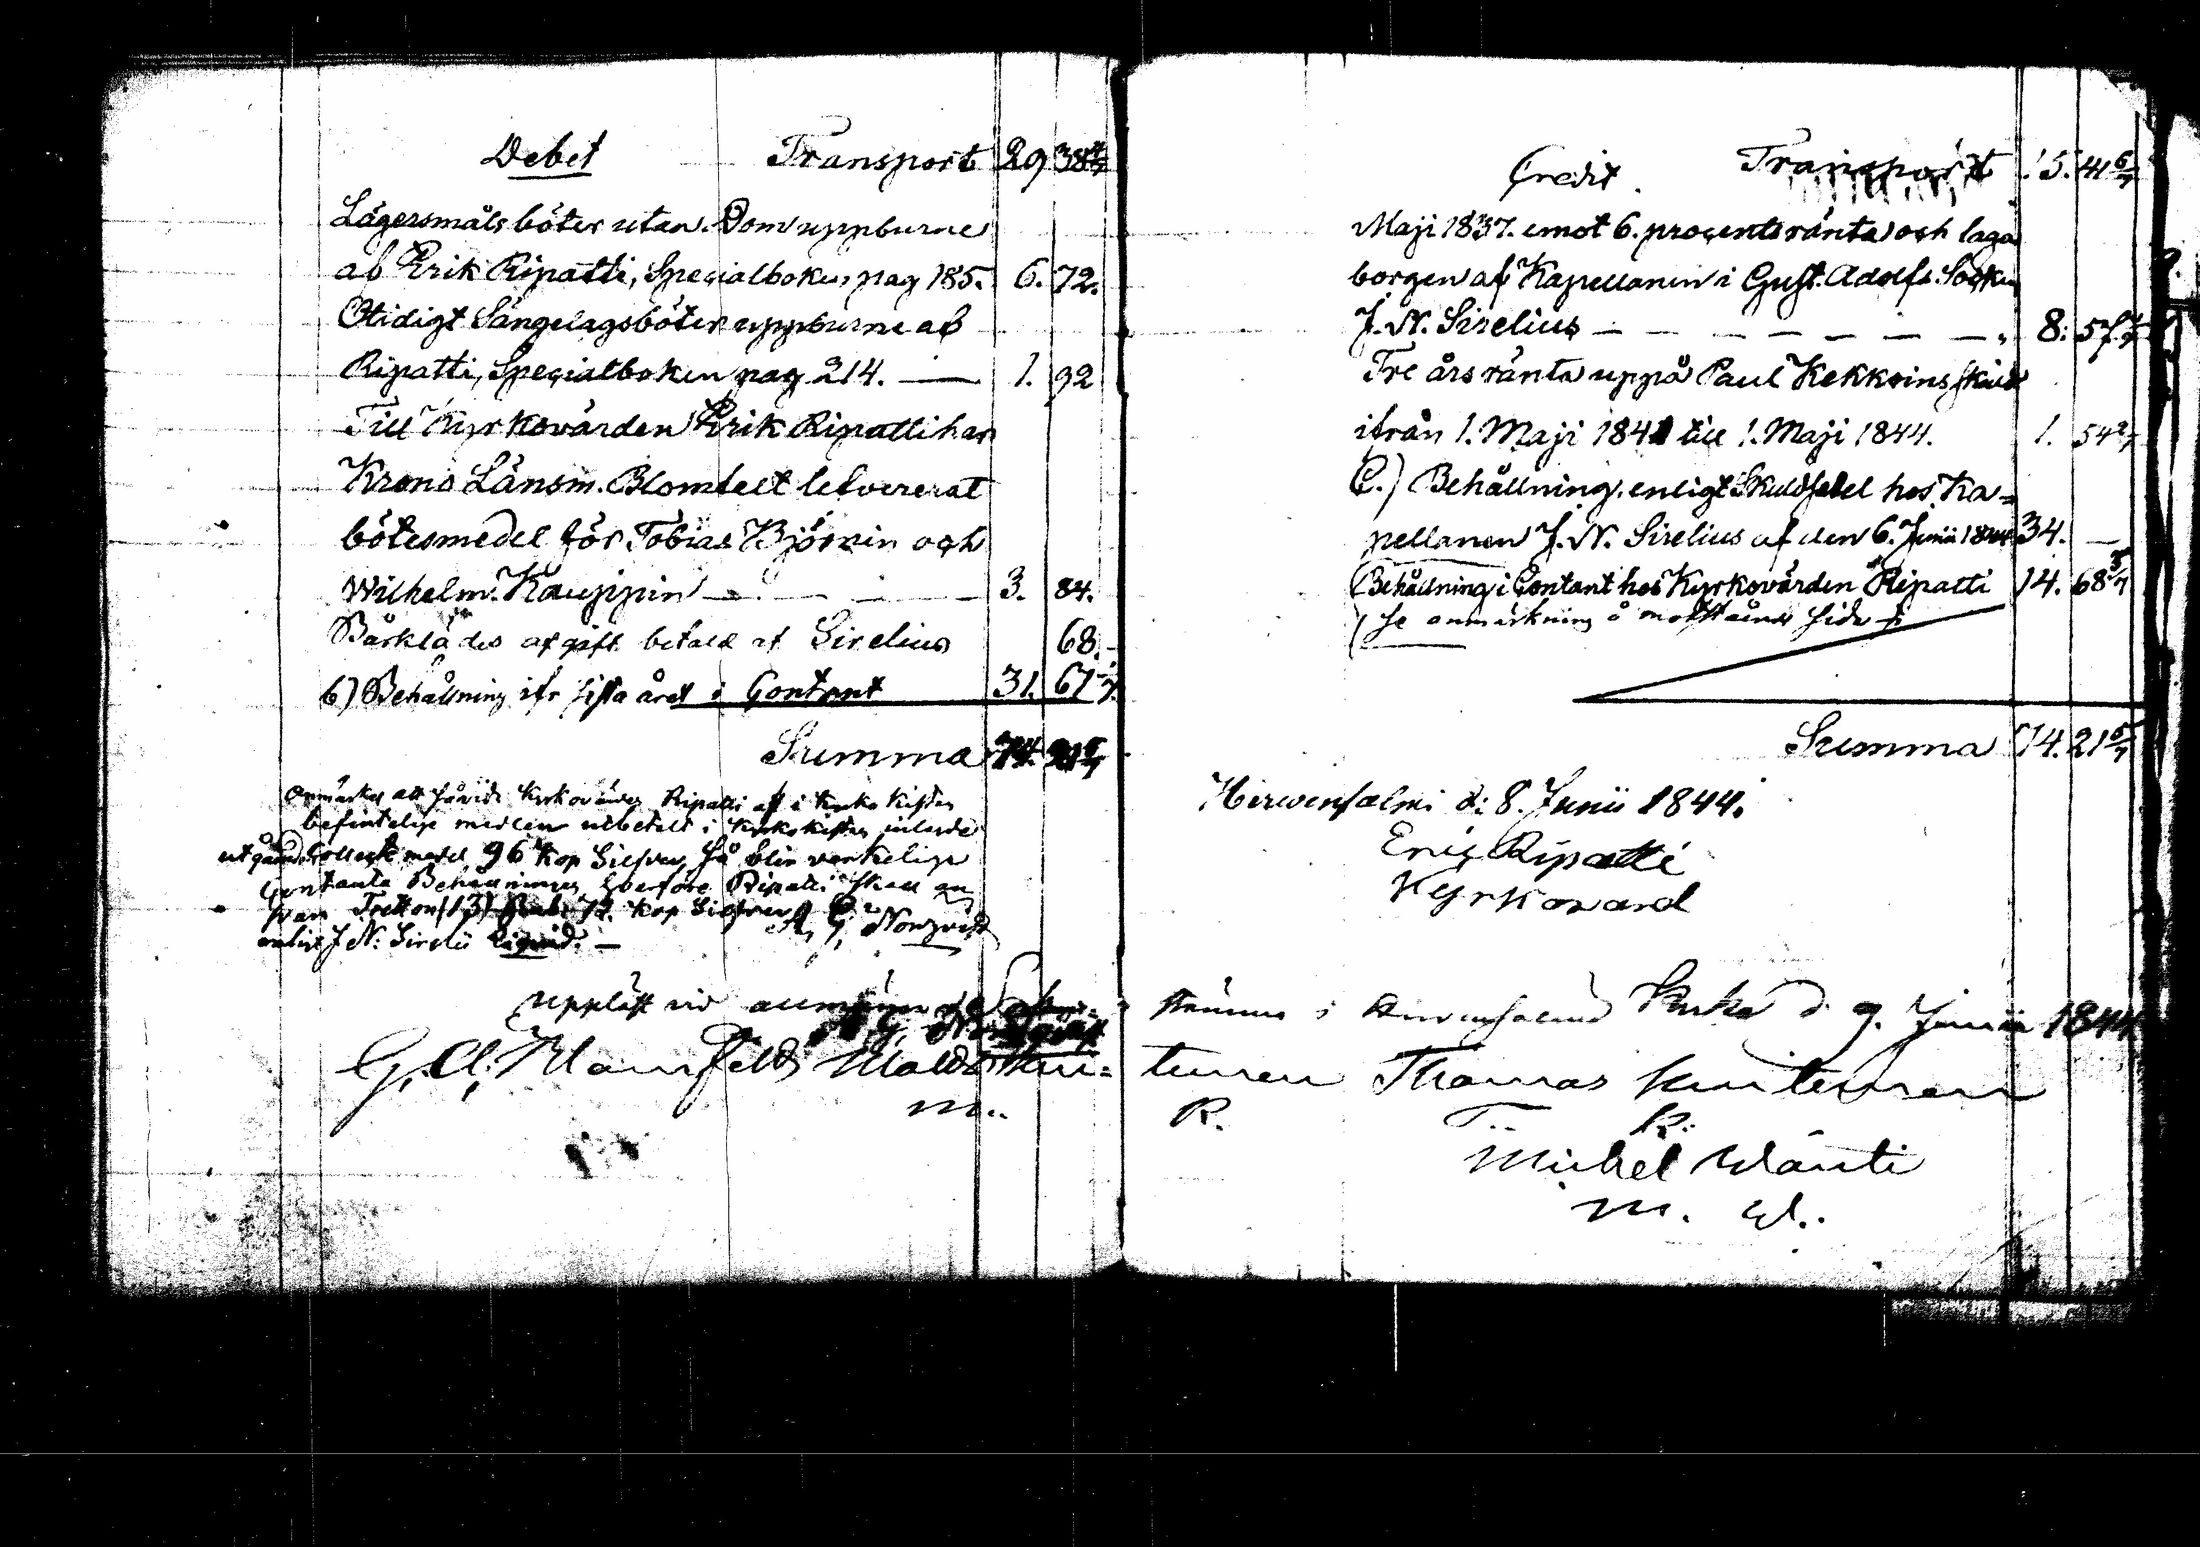 Debet Transport 29 38 4/7
Lägersmåls böter utan Dom uppburne
af Erik Ripatti, Specialboken pag 185. 6. 72.
Otidigt Sängelagsböter uppburne af
Ripatti, Specialboken pag 214. — 1. 92
Till Kyrkovärden Erik Ripatti har
Krono Länsm. Blomfelt lefvererat
bötesmedel för Tobias Björnin och
Wilhelm Kauppin — — — 3. 84.
Bårklädes afgift betald af Sirelius 68.
b) Behållning ifr sista året i Contant 31. 67 1/7
Summa 74. 21 5/7
Anmärkes att såvida Kyrkovärden Ripatti af i Kyrko Kistan
befintelige medlen utbetalt i Kyrkokistan inlagde
utgående Collectmedel 96 Kop Silfver, så blir verkelige
Contanta Behållningen, hvarföre Ripatti skall
Tretton (13) Rub. 72 Kop Silfver
J. N. Sirelii Liquid. —
Uppläst vid allmän
G. A. Blomfeldt
M..
Credit Transport 15. 41 6/7
Maji 1837. emot 6. procents ränta och laga
borgen af Kapellanen i Gust. Adolfs Socken
J. N. Sirelius — — — — — — 8: 57 1/7
Tre års ränta uppå Paul Kekkoins skuld
ifrån 1. Maji 1841 till 1. Maji 1844. 1. 54 2/7
C.) Behållning, enligt Skuldsedel hos Ka=
pellanen J. N. Sirelius af den 6. Junii 1844 34. —
Behållning i Contant hos Kyrkovärden Ripatti 14. 68 3/7
se anmärkning å motstående sida
Summa 74. 21 5/7
Hirvensalmi d: 8. Junii 1844.
Eric Ripatti
Kyrkovard
stämma i Hirvensalmi Kyrka d. 9. Junii 1844
tunen Thomas
R. T..
Michel Wänti
M. W.